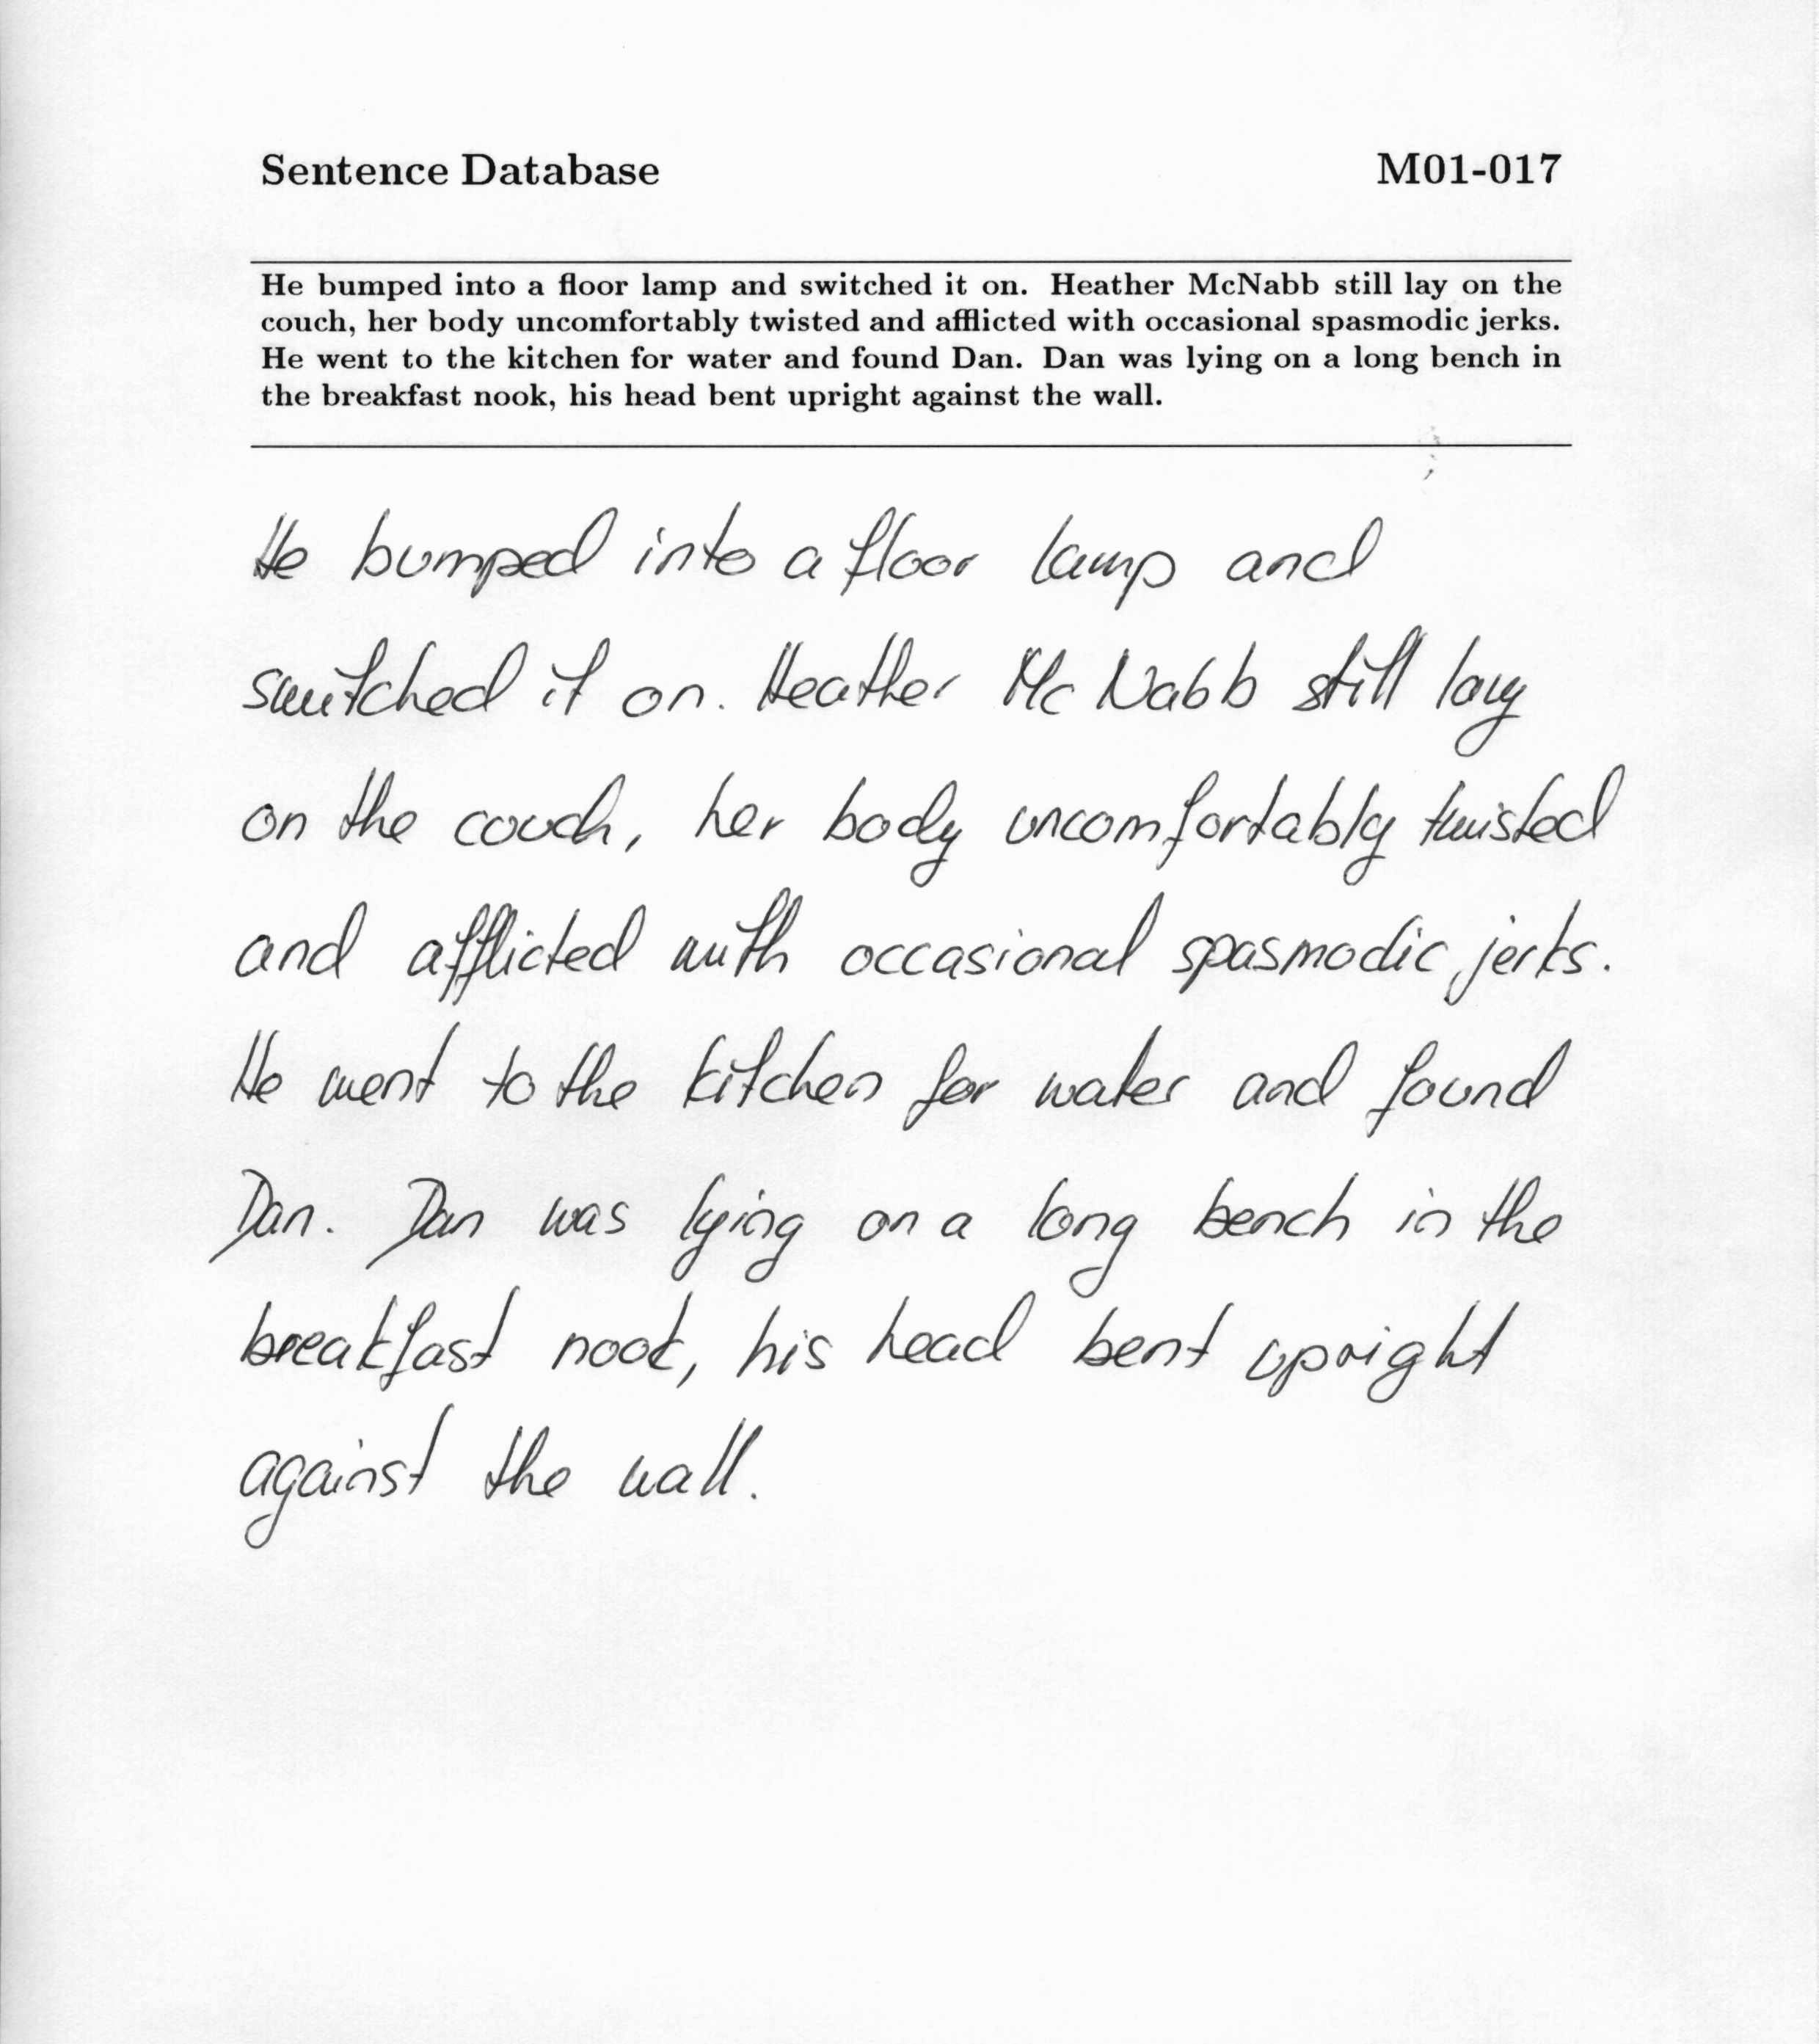 Sentence Database M01-017
He bumped into a floor lamp and switched it on. Heather McNabb still lay on the
couch, her body uncomfortably twisted and afflicted with occasional spasmodic jerks.
He went to the kitchen for water and found Dan. Dan was lying on a long bench in
the breakfast nook, his head bent upright against the wall.
He bumped into a floor lamp and
switched it on. Heather Mc Nabb still lay
on the couch, her body uncomfortably twisted
and afflicted with occasional spasmodic jerks.
He went to the kitchen for water and found
Dan. Dan was lying on a long bench in the
breakfast nook, his head bent upright
against the wall.